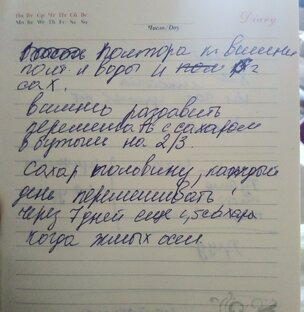 Пн Вт Ср Чт Пт Сб Вс
Mo We Th Fr Sa Su
Diary
Число/Day
полтора кг вишни
воды и
сах.
вишню раздавить
перемешать с сахаром
в бутыль на 2/3
Сахар половину, каждый
день перемешивать!
через 7 дней еще 0,5 сахара
когда жмых осел.